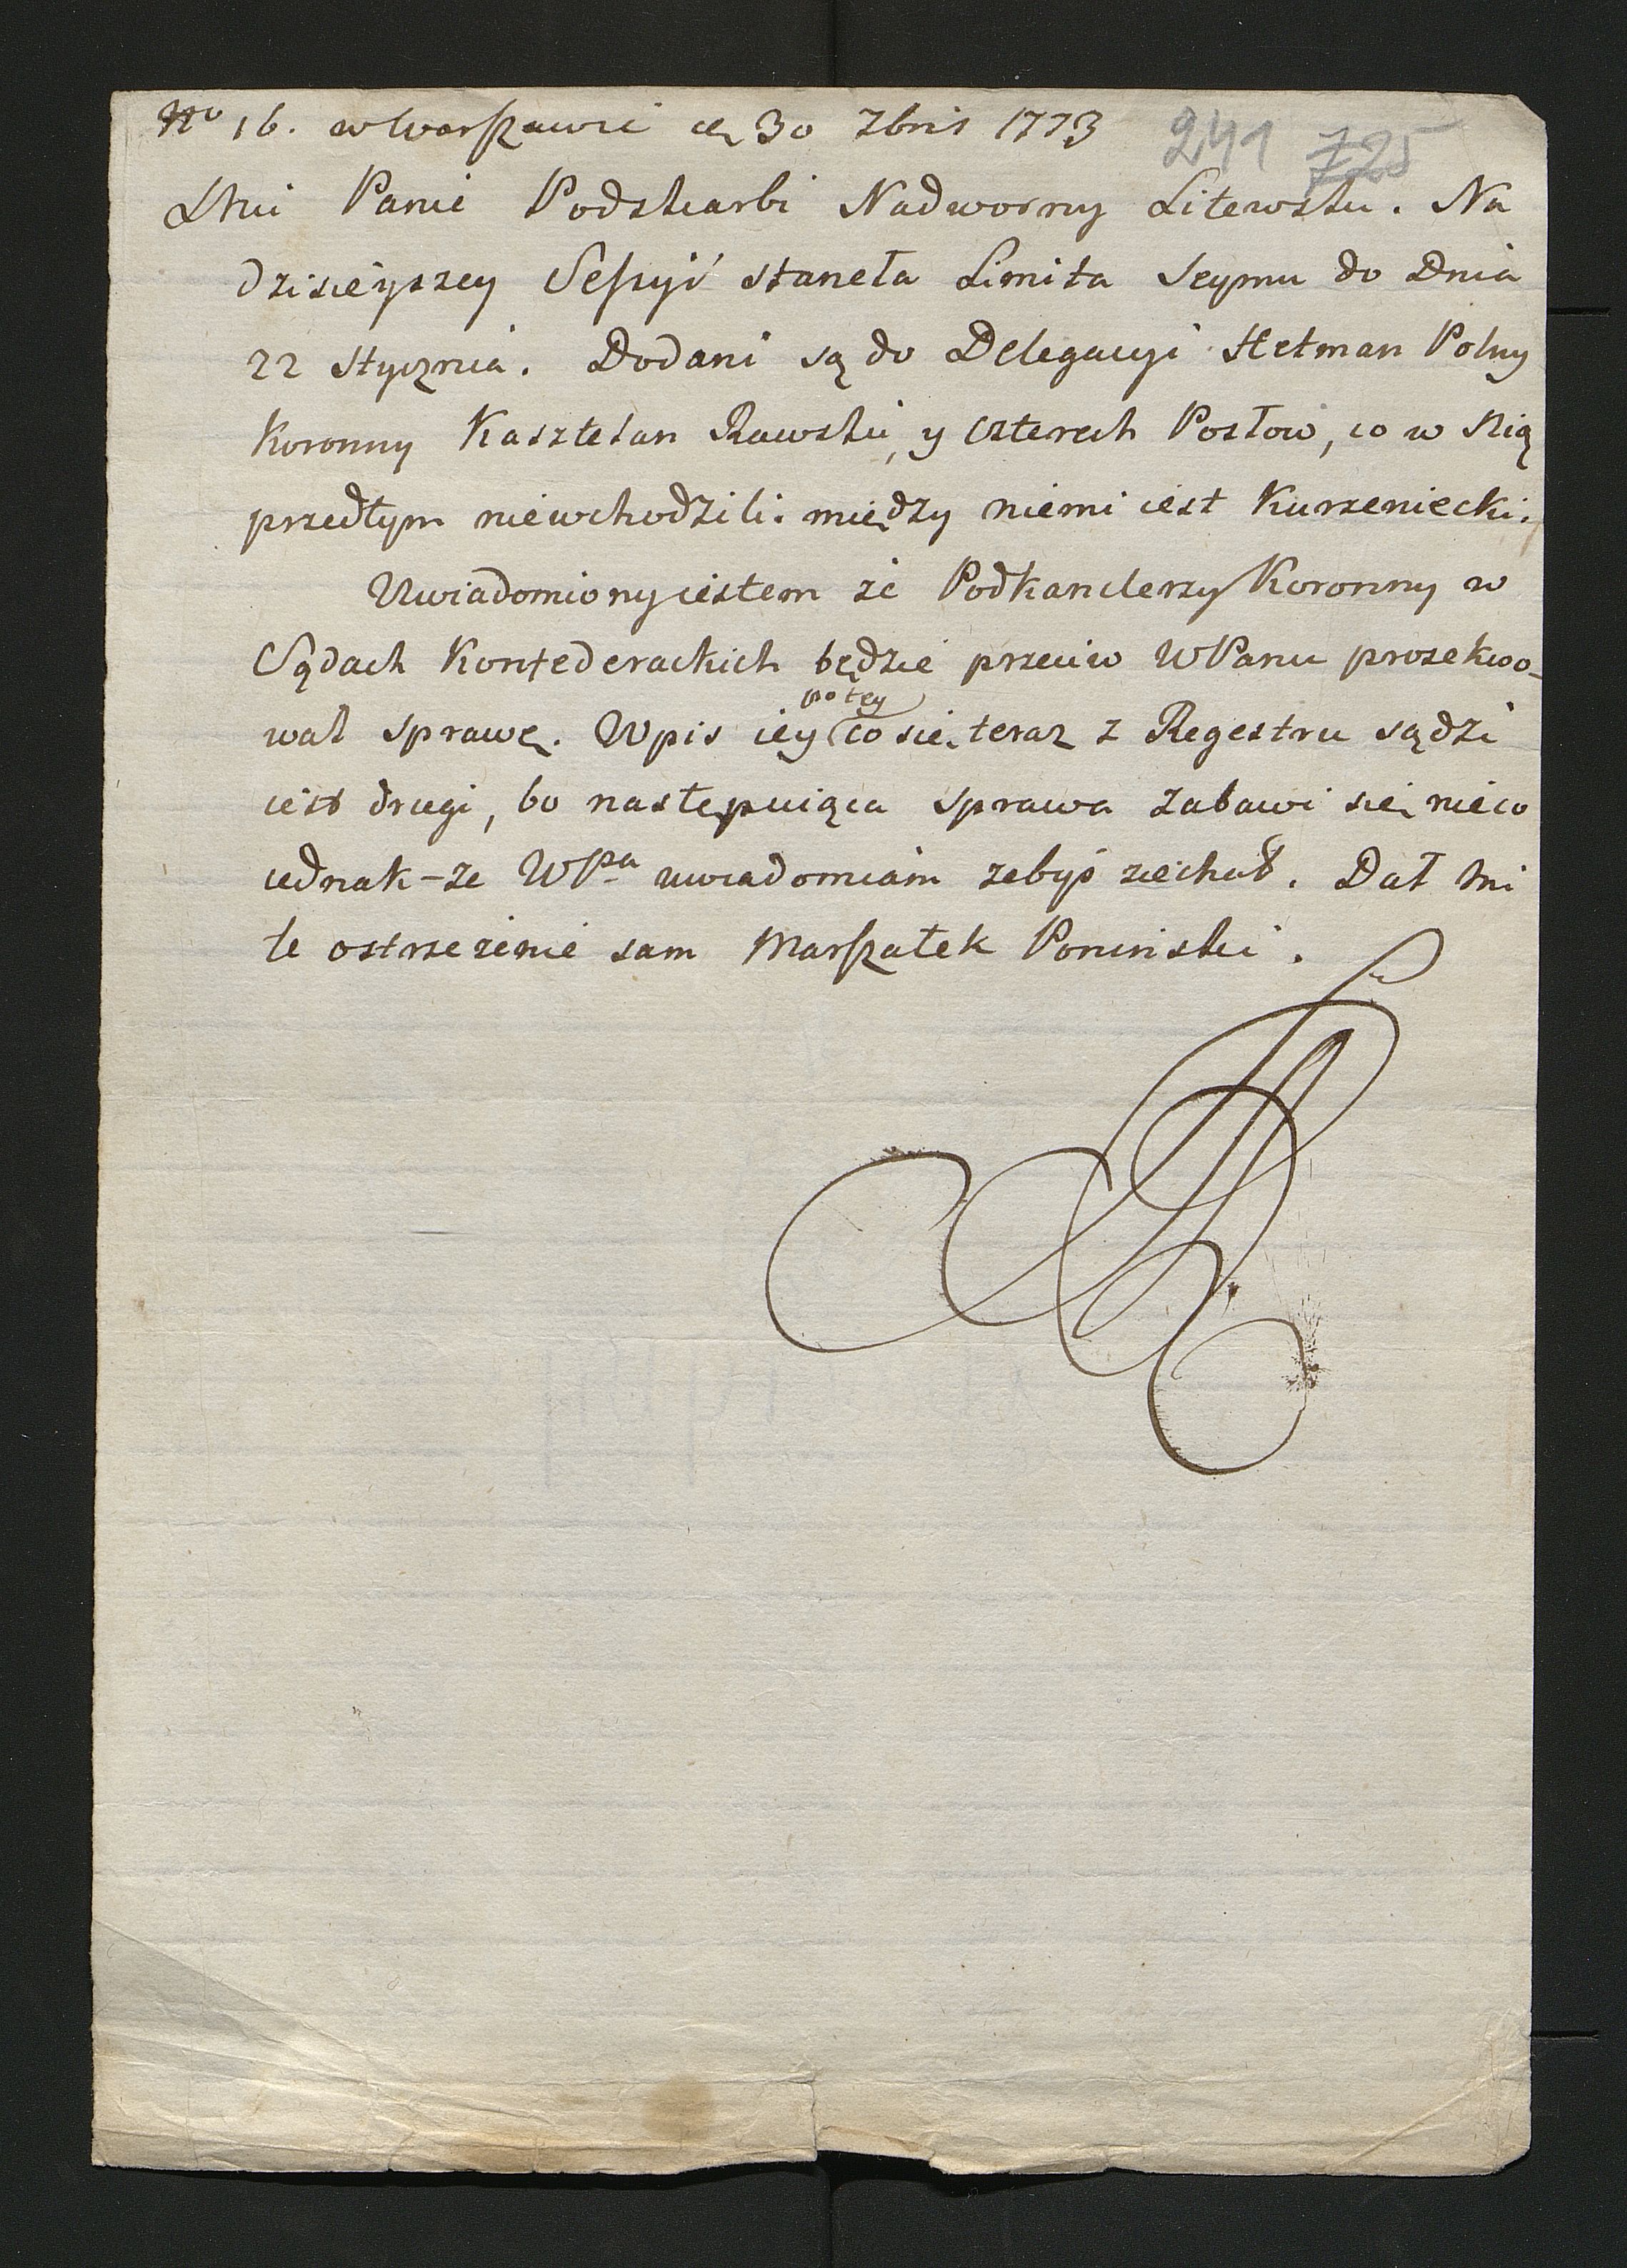 No 16. w Warszawie d. 30 7bris 1773 241 725
Mci Panie Podskarbi Nadworny Litewski. Na
dzisieyszey Sessyi staneła Limita Seymu do Dnia
22 Stycznia. Dodani są do Delegacyi Hetman Polny
Koronny Kasztelan Rawski, y czterech Posłow, co w Nią
przedtym niewchodzili. między niemi iest Kurzeniecki.
Uwiadomiony iestem że Podkanclerzy Koronny w
Sądach Konfederackich będzie przeciw WPanu prosekwo-
po tey
wał sprawę. Wpis iey co się teraz z Regestru sądzi
iest drugi, bo następuiąca sprawa zabawi się nieco
iednak-ze WPa uwiadomiam zebyś ziechał. Dał mi
te ostrzezenie sam Marszałek Poninski.